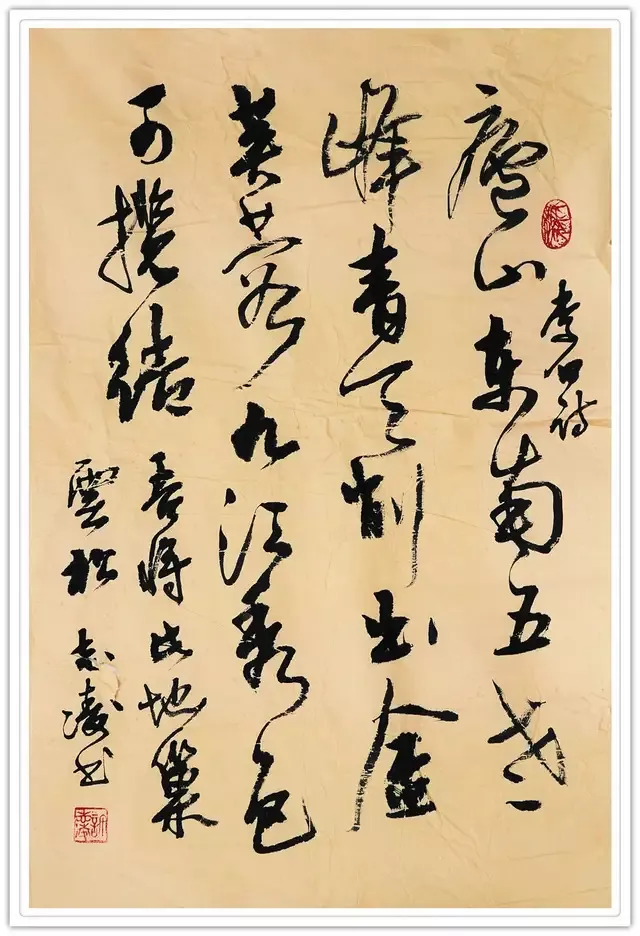 李白诗
廬山东南五老
峰青天削出金
芙蓉九江秀色
可揽結吾将此地巢
雲松志书